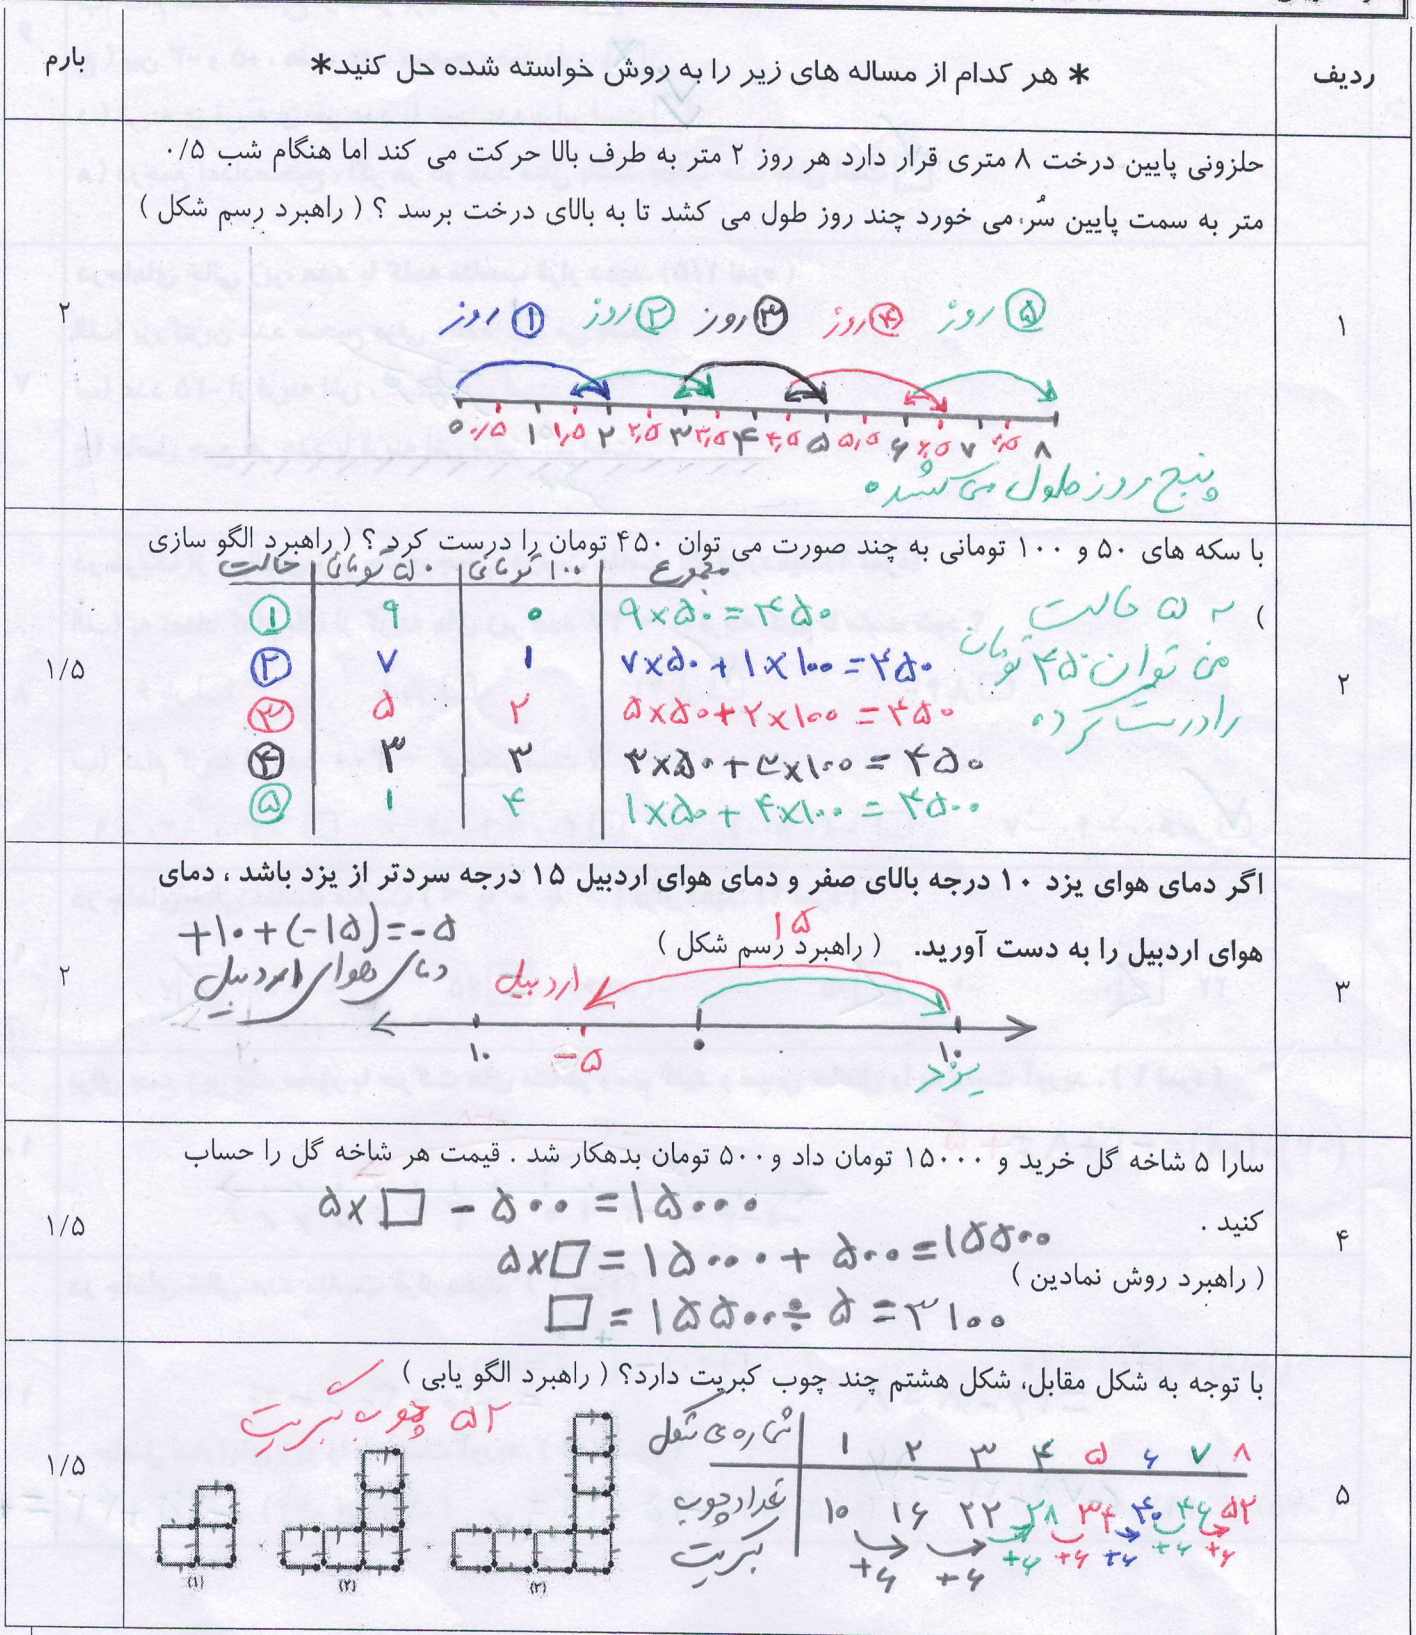 ردیف
* هر کدام از مساله های زیر را به روش خواسته شده حل کنید*
بارم
۱
حلزونی پایین درخت ۸ متری قرار دارد هر روز ۲ متر به طرف بالا حرکت می کند اما هنگام شب ۰/۵
متر به سمت پایین سُر می خورد چند روز طول می کشد تا به بالای درخت برسد ؟ ( راهبرد رسم شکل )
۲
روز ۱ روز ۲ روز ۳ روز ۴ روز ۵
۰ ۰/۵ ۱ ۱,۵ ۲ ۲,۵ ۳ ۳,۵ ۴ ۴,۵ ۵ ۵,۵ ۶ ۶,۵ ۷ ۷,۵ ۸
پنج روز طول می کشد.
۲
با سکه های ۵۰ و ۱۰۰ تومانی به چند صورت می توان ۴۵۰ تومان را درست کرد ؟ ( راهبرد الگو سازی
)
۱/۵
حالت | ۵۰ تومانی | ۱۰۰ تومانی | مجموع
۱ ۹ ۰ ۹×۵۰=۴۵۰
۲ ۷ ۱ ۷×۵۰+۱×۱۰۰=۴۵۰
۳ ۵ ۲ ۵×۵۰+۲×۱۰۰=۴۵۰
۴ ۳ ۳ ۳×۵۰+۳×۱۰۰=۴۵۰
۵ ۱ ۴ ۱×۵۰+۴×۱۰۰=۴۵۰۰
به ۵ حالت
می توان ۴۵۰ تومان
را درست کرد.
۳
اگر دمای هوای یزد ۱۰ درجه بالای صفر و دمای هوای اردبیل ۱۵ درجه سردتر از یزد باشد ، دمای
هوای اردبیل را به دست آورید. ( راهبرد رسم شکل )
۲
+۱۰+(-۱۵)=-۵
دمای هوای اردبیل
۱۵
اردبیل
۱۰ -۵ ۰ ۱۰
یزد
۴
سارا ۵ شاخه گل خرید و ۱۵۰۰۰ تومان داد و ۵۰۰ تومان بدهکار شد . قیمت هر شاخه گل را حساب
کنید .
( راهبرد روش نمادین )
۱/۵
۵×□ - ۵۰۰ = ۱۵۰۰۰
۵×□ = ۱۵۰۰۰ + ۵۰۰ = ۱۵۵۰۰
□ = ۱۵۵۰۰ ÷ ۵ = ۳۱۰۰
۵
با توجه به شکل مقابل، شکل هشتم چند چوب کبریت دارد؟ ( راهبرد الگو یابی )
۱/۵
۵۲ چوب کبریت
شماره ی شکل | ۱ ۲ ۳ ۴ ۵ ۶ ۷ ۸
تعداد چوب کبریت | ۱۰ ۱۶ ۲۲ ۲۸ ۳۴ ۴۰ ۴۶ ۵۲
+۶ +۶ +۶ +۶ +۶ +۶ +۶
(۱) (۲) (۳)